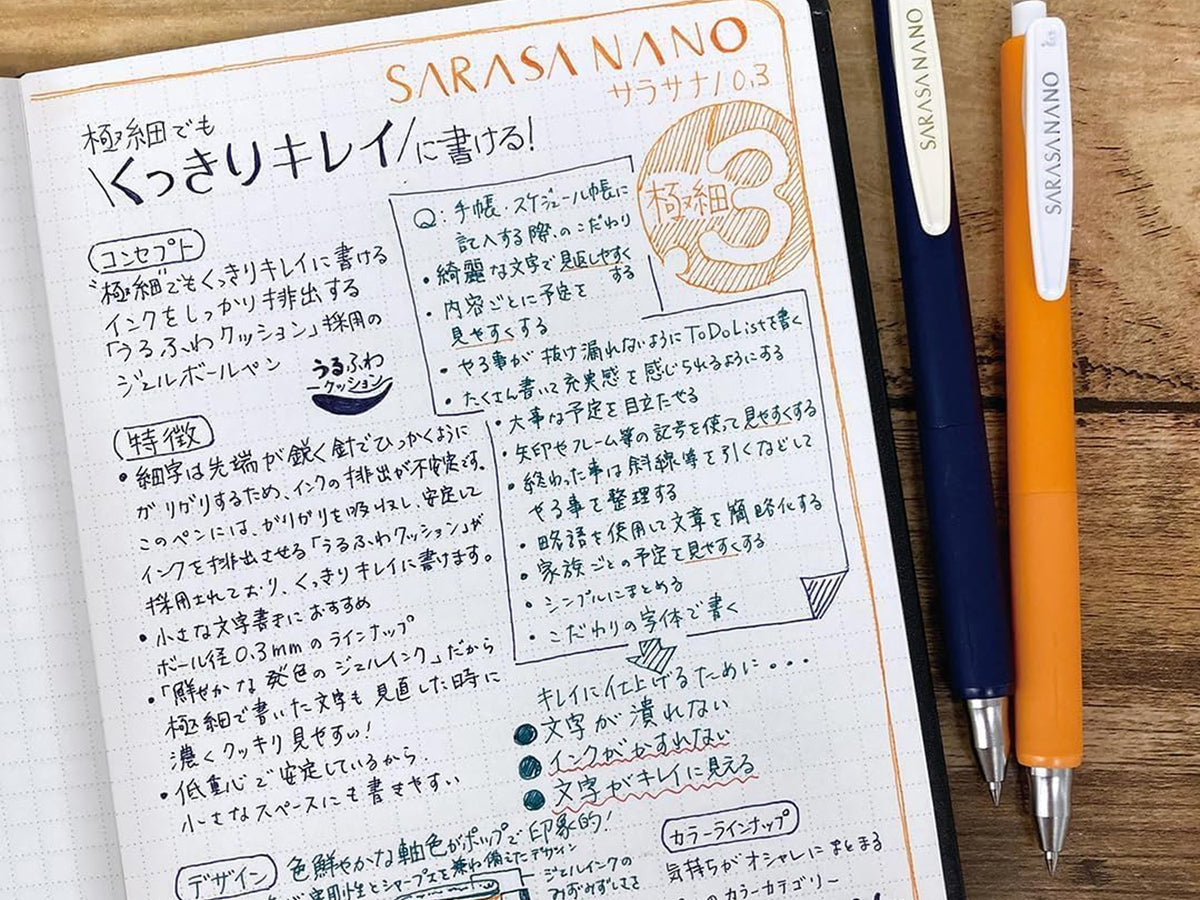 SARASA NANO
サラサナノ 0.3
極細でも
\くっきりキレイ/に書ける!
極細
.3
コンセプト
"極細でもくっきりキレイに書ける
インクをしっかり排出する
「うるふわクッション」採用の
ジェルボールペン
うるふわ
クッション
特徴
・細字は先端が鋭く針でひっかくように
ガリガリするため、インクの排出が不安定です。
このペンには、がりがりを吸収し、安定して
インクを排出させる「うるふわクッション」が
採用されており、くっきりキレイに書けます。
・小さな文字書きにおすすめ
ボール径0.3mmのラインナップ
・「鮮やかな発色のジェルインク」だから
極細で書いた文字も見直した時に
濃くクッキリ見やすい!
・低重心で安定しているから、
小さなスペースにも書きやすい
Q:手帳・スケジュール帳に
記入する際、のこだわり
・綺麗な文字で見返しやすく
する
・内容ごとに予定を
見やすくする
・やる事が抜け漏れないようにToDoListを書く
・たくさん書いて充実感を感じられるようにする
・大事な予定を目立たせる
・矢印やフレーム等の記号を使って見やすくする
・終わった事は斜線等を引くなどして
やる事を整理する
・略語を使用して文章を簡略化する
・家族ごとの予定を見やすくする
・シンプルにまとめる
・こだわりの字体で書く
キレイに仕上げるために・・・
●文字が潰れない
●インクがかすれない
●文字がキレイに見える
デザイン
色鮮やかな軸色がポップで印象的!
実用性とシャープさを兼ね備えたデザイン
ジェルインクの
みずみずしさを
カラーラインナップ
気持ちがオシャレにまとまる
のカラーカテゴリー
SARASA NANO
SARASA NANO